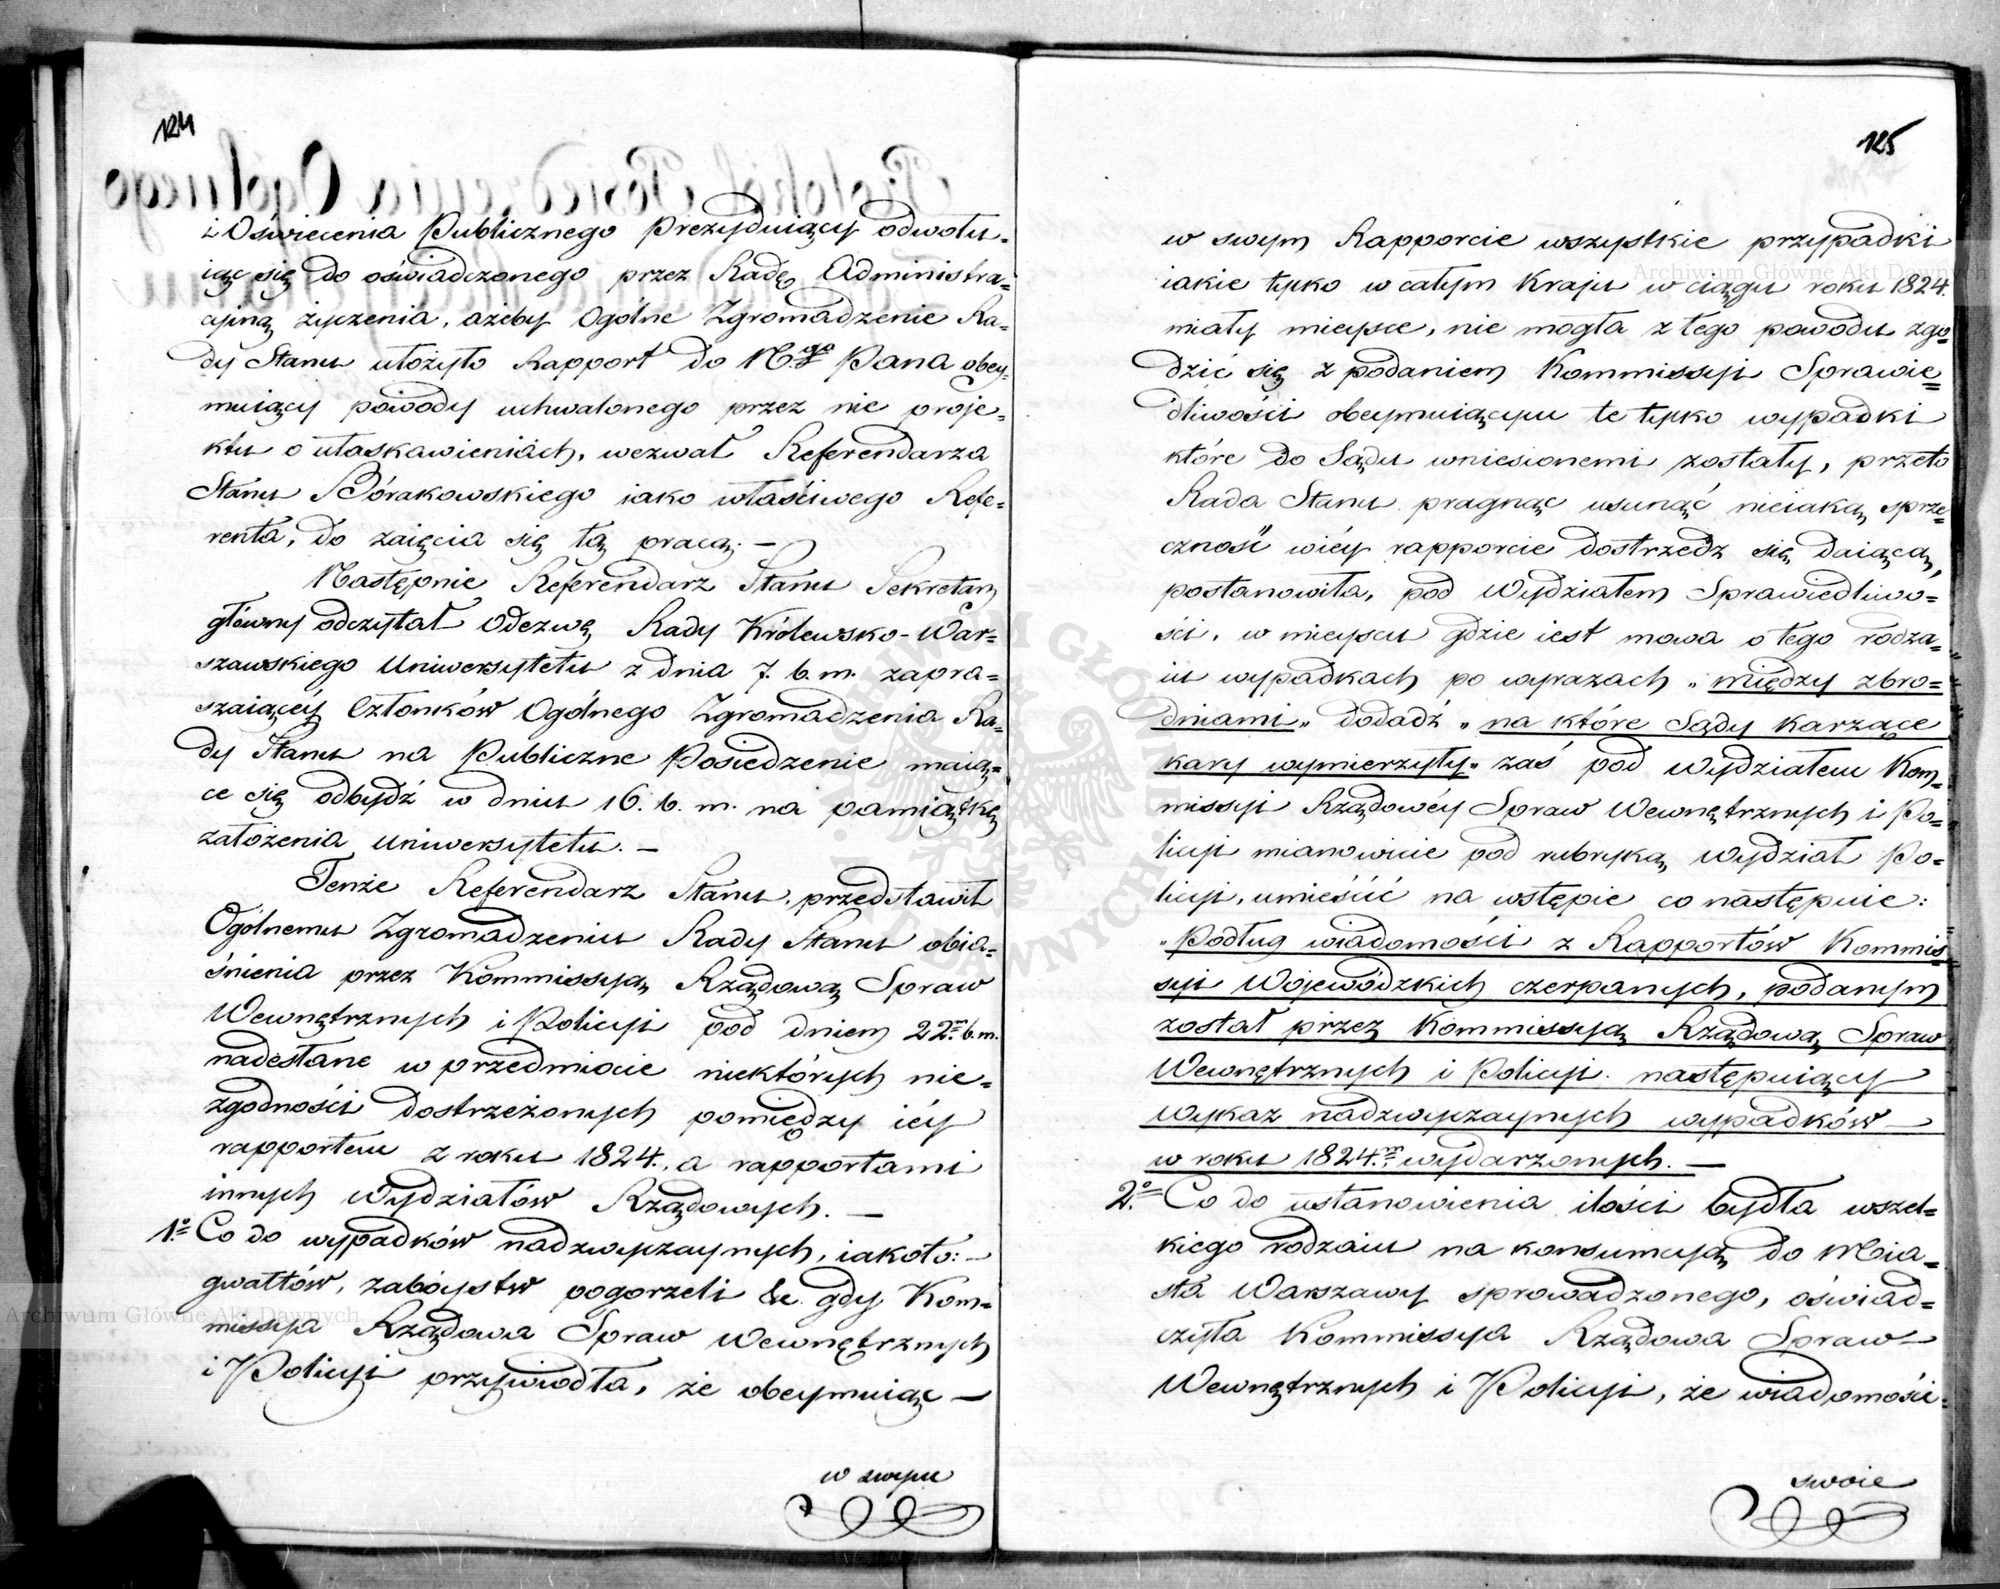 124
i Oświecenia Publicznego Prezyduiący odwołu-
iąc się do oświadczonego przez Radę Administra-
cyiną życzenia, ażeby Ogólne Zgromadzenie Ra-
dy Stanu ułożyło Rapport do N.go Pana obey-
muiący powody uchwalonego przez nie proje-
ktu o ułaskawieniach, wezwał Referendarza
Stanu Bórakowskiego iako właściwego Refe-
renta, do zaięcia się tą pracą. —
Następnie Referendarz Stanu Sekretarz
główny odczytał Odezwę Rady Królewsko-War-
szawskiego Uniwersytetu z dnia 7. b. m. zapra-
szaiącéy Członków Ogólnego Zgromadzenia Ra-
dy Stanu na Publiczne Posiedzenie maią-
ce się odbydź w dniu 16. b. m. na pamiątkę
założenia Uniwersytetu. —
Tenże Referendarz Stanu, przedstawił
Ogólnemu Zgromadzeniu Rady Stanu obia-
śnienia przez Kommissyą Rządową Spraw
Wewnętrznych i Policyi pod dniem 22.m b. m.
nadesłane w przedmiocie niektórych nie-
zgodności dostrzeżonych pomiędzy iéy
rapportem z roku 1824., a rapportami
innych Wydziałów Rządowych. —
1.o Co do wypadków nadzwyczaynych, iakoto: —
gwałtów, zabóystw pogorzeli &c. gdy Kom-
missya Rządowa Spraw Wewnętrznych
i Policyi przywiodła, że obeymuiąc —
w swym
125
w swym Rapporcie wszystkie przypadki
iakie tylko w całym Kraju w ciągu roku 1824.
miały mieysce, nie mogła z tego powodu zgo-
dzić się z podaniem Kommissyi Sprawie-
dliwości obeymuiącym te tylko wypadki
które do Sądu wniesionemi zostały, przeto
Rada Stanu pragnąc usunąć nieiaką sprze-
czność w iéy rapporcie dostrzedz się daiącą,
postanowiła, pod Wydziałem Sprawiedliwo-
ści, w mieyscu gdzie iest mowa o tego rodza-
iu wypadkach po wyrazach „ między zbro-
dniami „ dodadź „ na które Sądy karzące
kary wymierzyły „ zaś pod Wydziałem Kom-
missyi Rządowéy Spraw Wewnętrznych i Po-
licyi mianowicie pod rubryką Wydział Po-
licyi, umieścić na wstępie co następuie:
„ Podług wiadomości z Rapportów Kommis-
syi Wojewódzkich czerpanych, podanym
został przez Kommissyą Rządową Spraw
Wewnętrznych i Policyi następuiący
wykaz nadzwyczaynych wypadków —
w roku 1824.m wydarzonych. —
2.o Co do ustanowienia ilości bydła wszel-
kiego rodzaiu na konsumcyą do Mia-
sta Warszawy sprowadzonego, oświad-
czyła Kommissya Rządowa Spraw —
Wewnętrznych i Policyi, że wiadomości
swoie
Archiwum Główne Akt Dawnych
Archiwum Główne Akt Dawnych